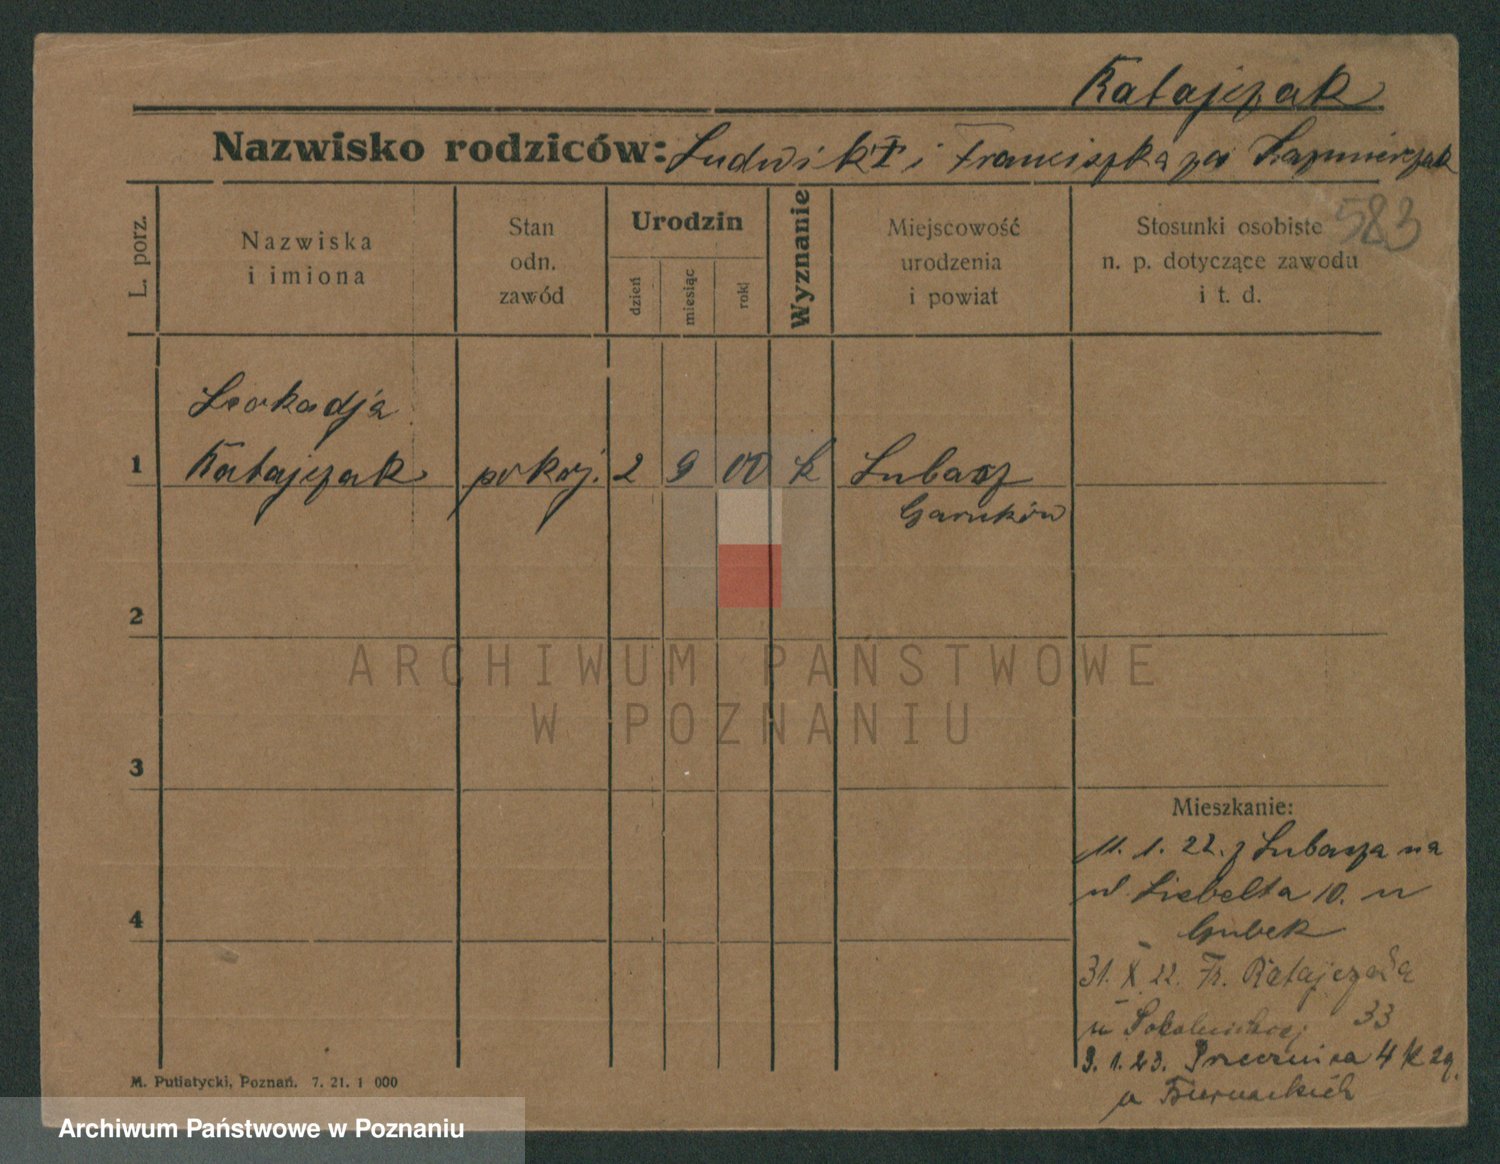 Ratajczak
Nazwisko rodziców: Ludwik † i Franciszka za Kazmierczak
583
L. porz.
Nazwiska
i imiona
Stan
odn.
zawód
Urodzin
dzień
miesiąc
rok
Wyznanie
Miejscowość
urodzenia
i powiat
Stosunki osobiste
n. p. dotyczące zawodu
i t. d.
Leokadja
1 Ratajczak pokoj. 2 9 00 k Lubasz
Czarnków
2
3
4
Mieszkanie:
11. 1. 22. z Lubasza na
ul. Liebelta 10. u
31. X 22. Fr. Ratajczaka
u 33
9. 1. 23. 4
u
M. Putiatycki, Poznań. 7. 21. 1 000
ARCHIWUM PAŃSTWOWE
W POZNANIU
Archiwum Państwowe w Poznaniu